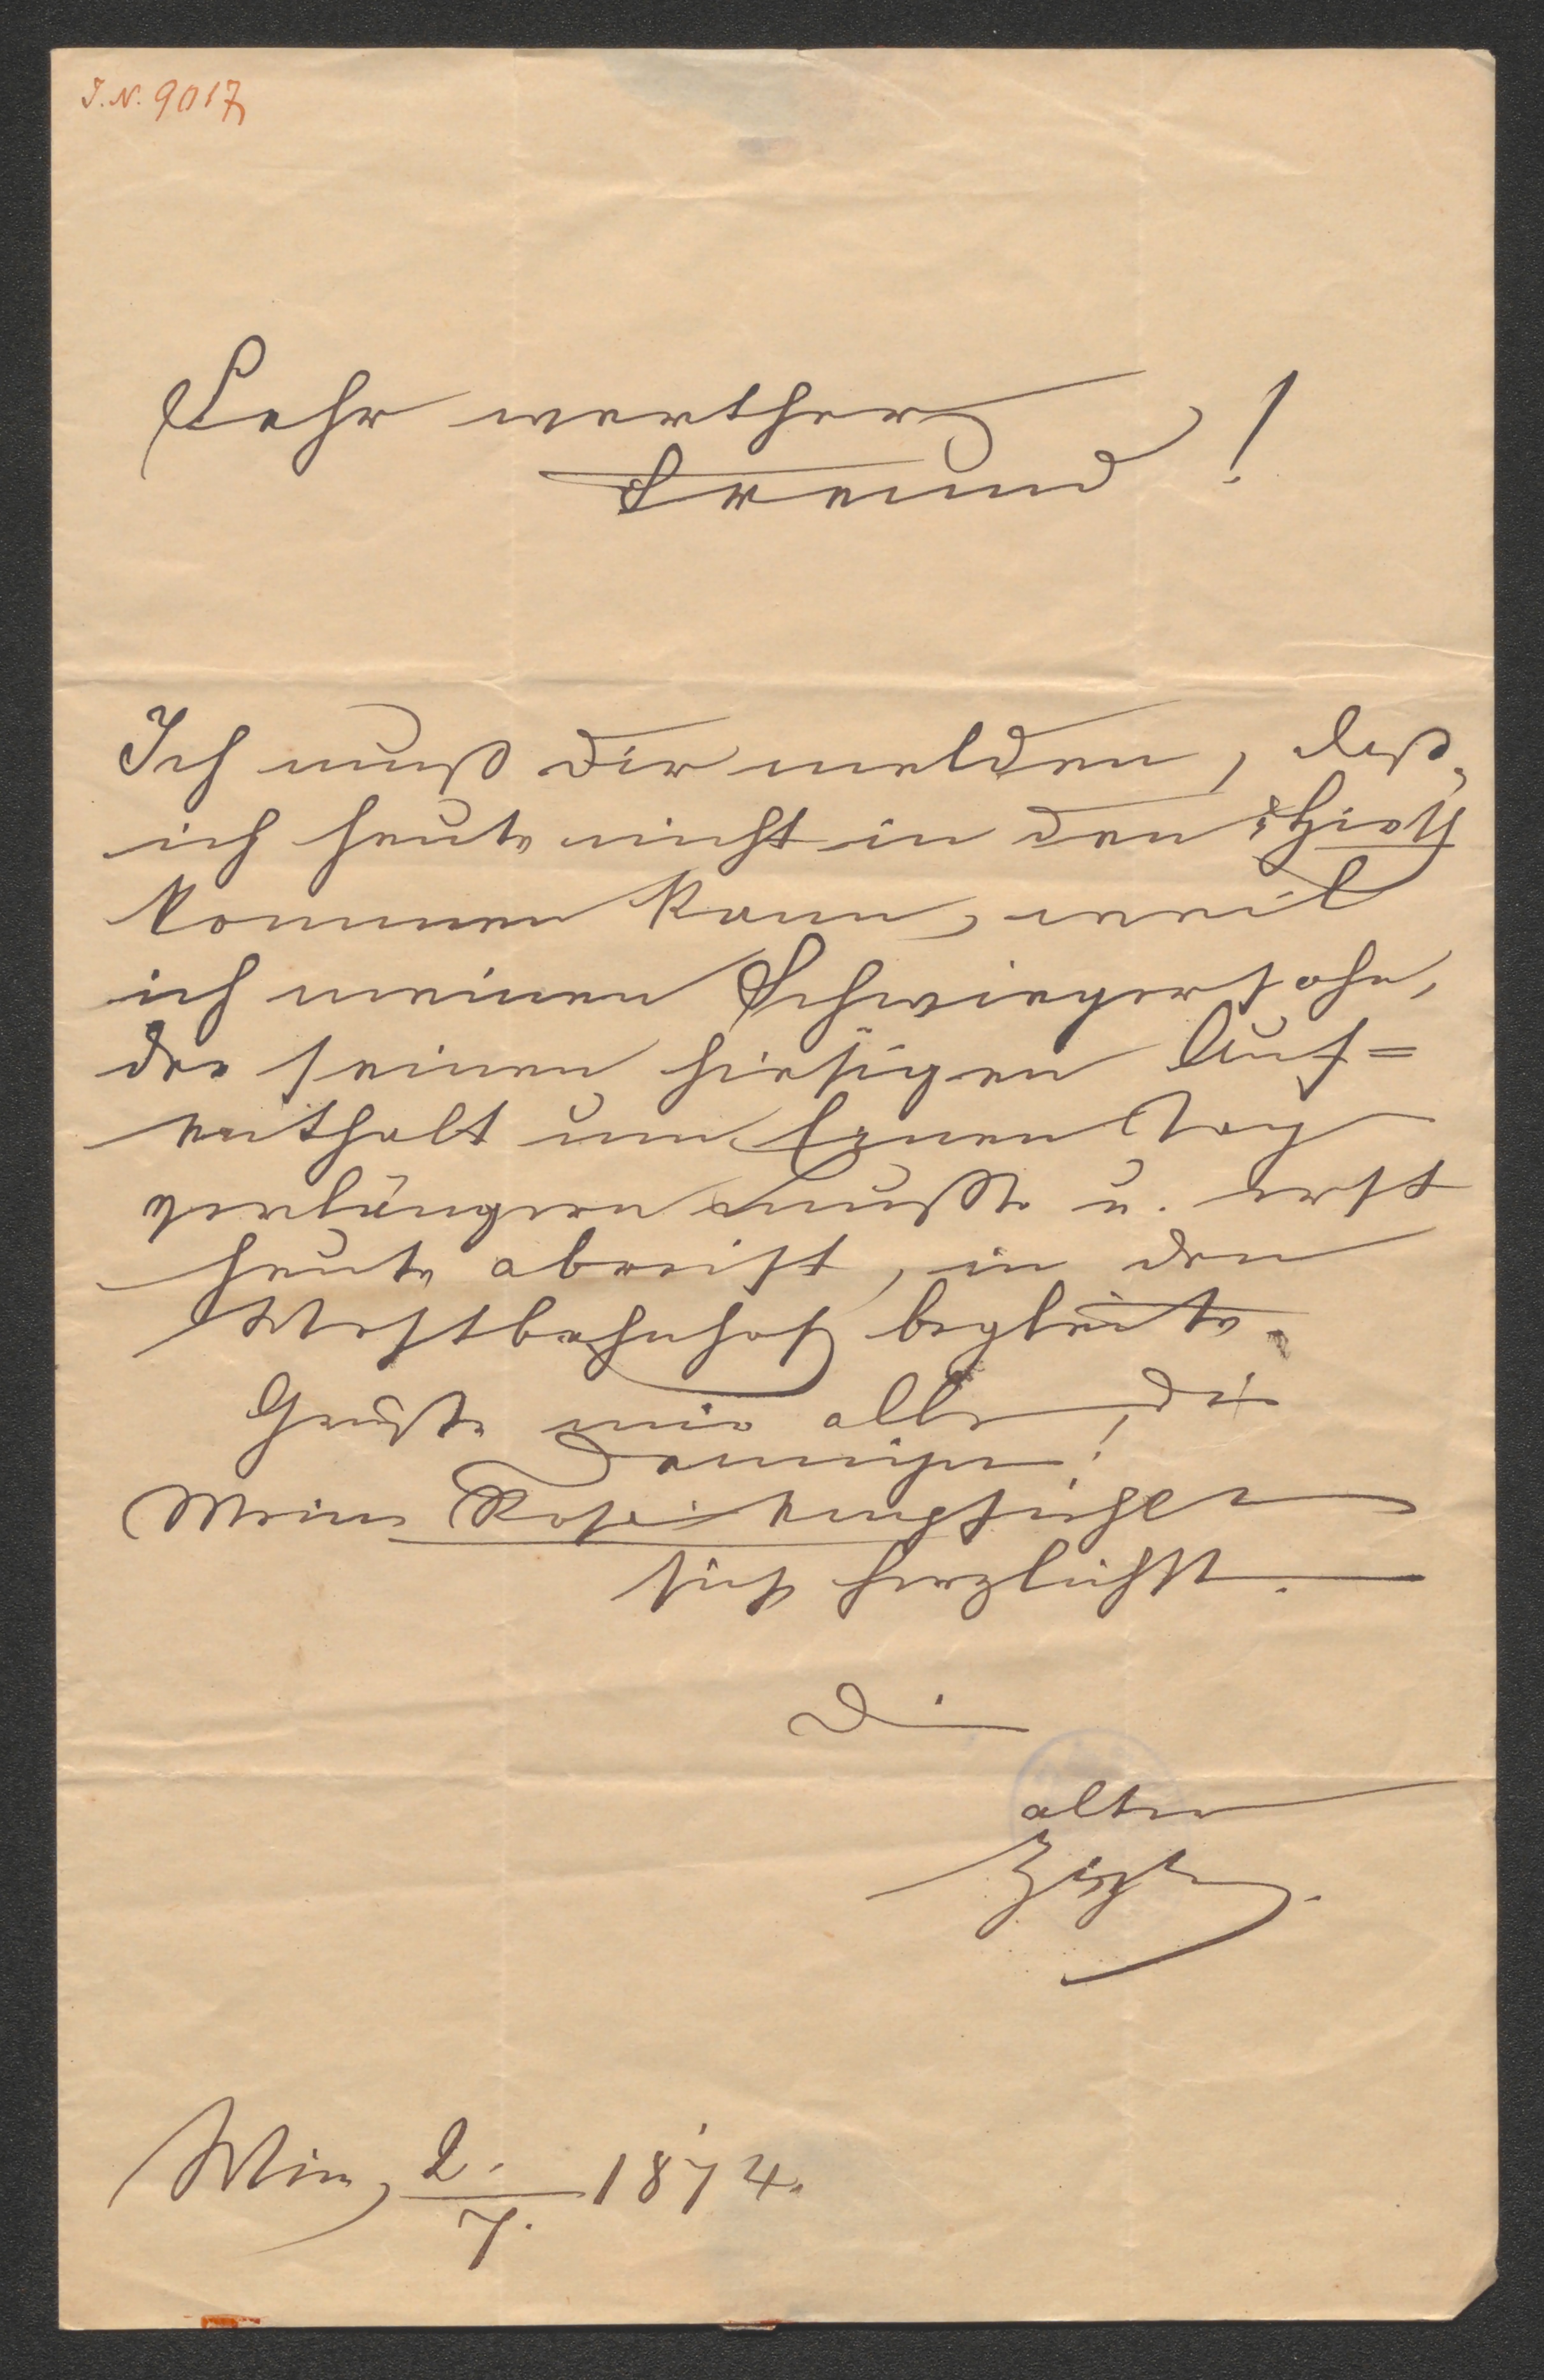 I.N. 9017
Sehr werther
Freund!
Ich muß dir melden, daß
ich heute nicht in den
kommen kann, weil
ich meinen Schwiegersohn,
der seinen hiesigen Auf=
enthalt um Einen Tag
verlängern mußte u. erst
heute abreist, in den
Westbahnhof begleite.
Grüße mir alle die
Deinigen!
Meine Rosi empfiehlt
sich herzlichst.
Dein
alter
Wien, 2./7. 1874.